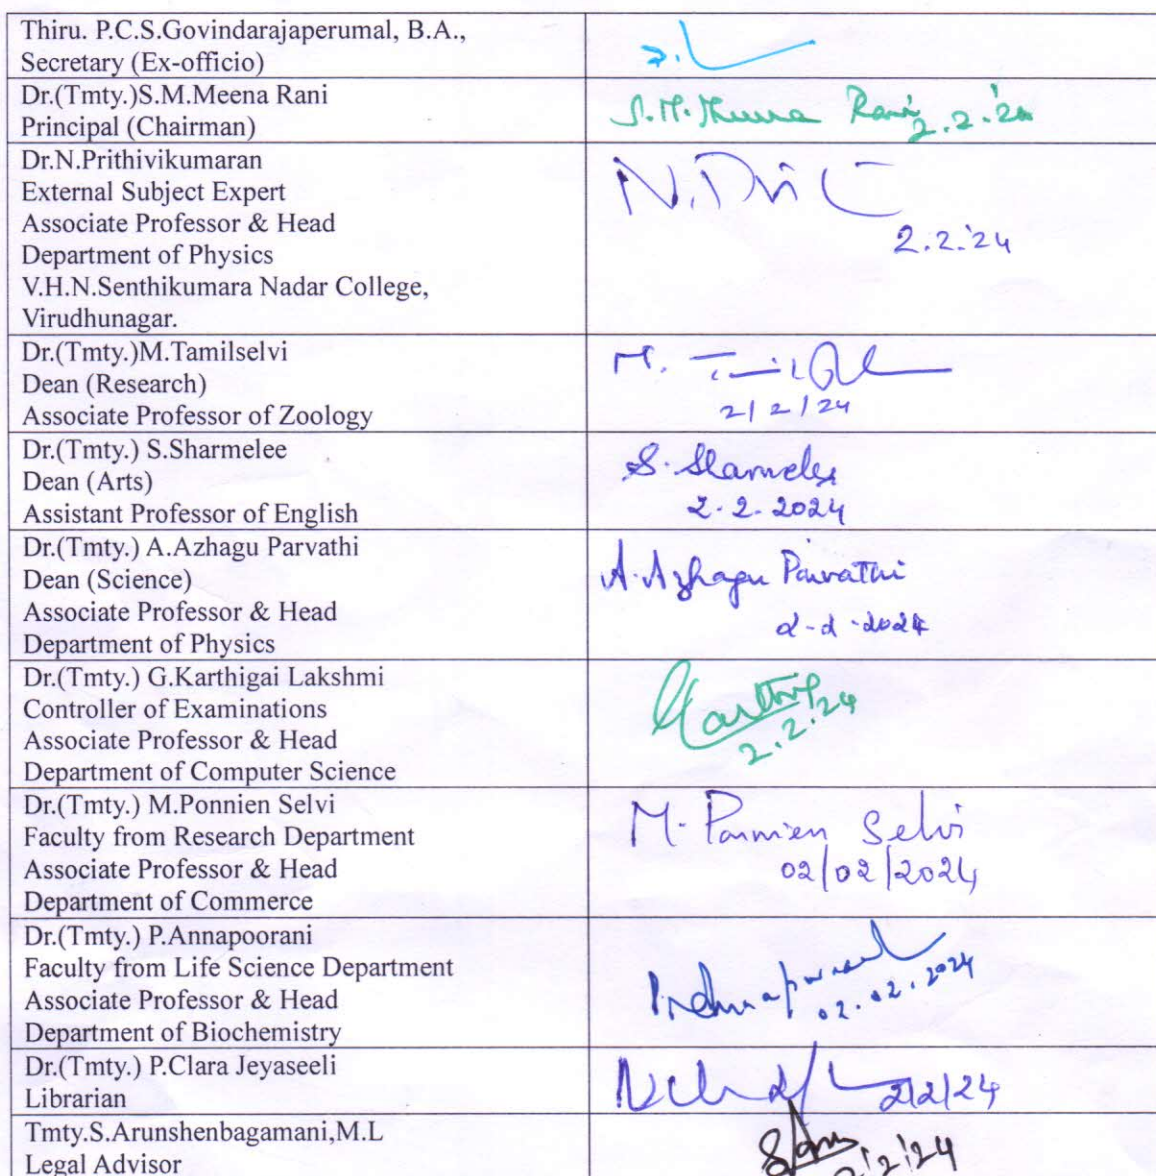 Thiru. P.C.S.Govindarajaperumal, B.A.,
Secretary (Ex-officio)
Dr.(Tmty.)S.M.Meena Rani
Principal (Chairman)
S.M.Meena Rani
2.2.'24
Dr.N.Prithivikumaran
External Subject Expert
Associate Professor & Head
Department of Physics
V.H.N.Senthikumara Nadar College,
Virudhunagar.
2.2.'24
Dr.(Tmty.)M.Tamilselvi
Dean (Research)
Associate Professor of Zoology
M.
2/2/24
Dr.(Tmty.) S.Sharmelee
Dean (Arts)
Assistant Professor of English
S. Sharmelee
2.2.2024
Dr.(Tmty.) A.Azhagu Parvathi
Dean (Science)
Associate Professor & Head
Department of Physics
A.Azhagu Parvathi
2-2-2024
Dr.(Tmty.) G.Karthigai Lakshmi
Controller of Examinations
Associate Professor & Head
Department of Computer Science
2.2.'24
Dr.(Tmty.) M.Ponnien Selvi
Faculty from Research Department
Associate Professor & Head
Department of Commerce
M. Ponnien Selvi
02/02/2024
Dr.(Tmty.) P.Annapoorani
Faculty from Life Science Department
Associate Professor & Head
Department of Biochemistry
02.02.2024
Dr.(Tmty.) P.Clara Jeyaseeli
Librarian
2/2/24
Tmty.S.Arunshenbagamani,M.L
Legal Advisor
2/2/24